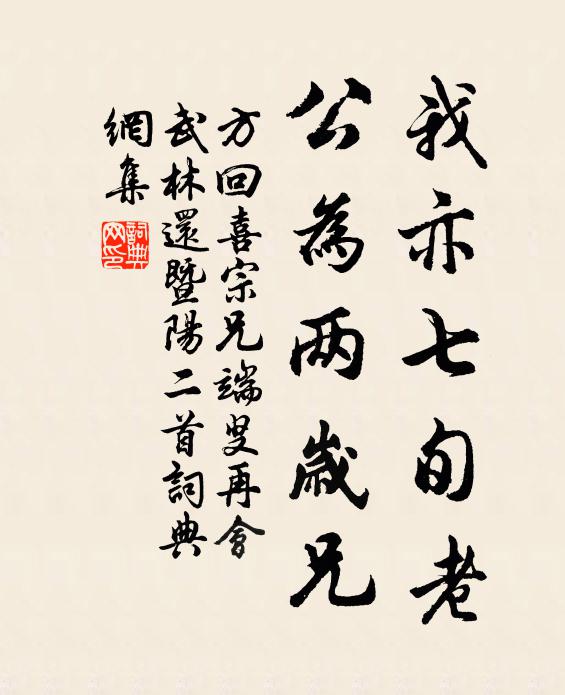 我亦七旬老
公為两歲兄
方回喜宗兄端叟再會
武林還暨陽二首詞典
網集
詞典
网印